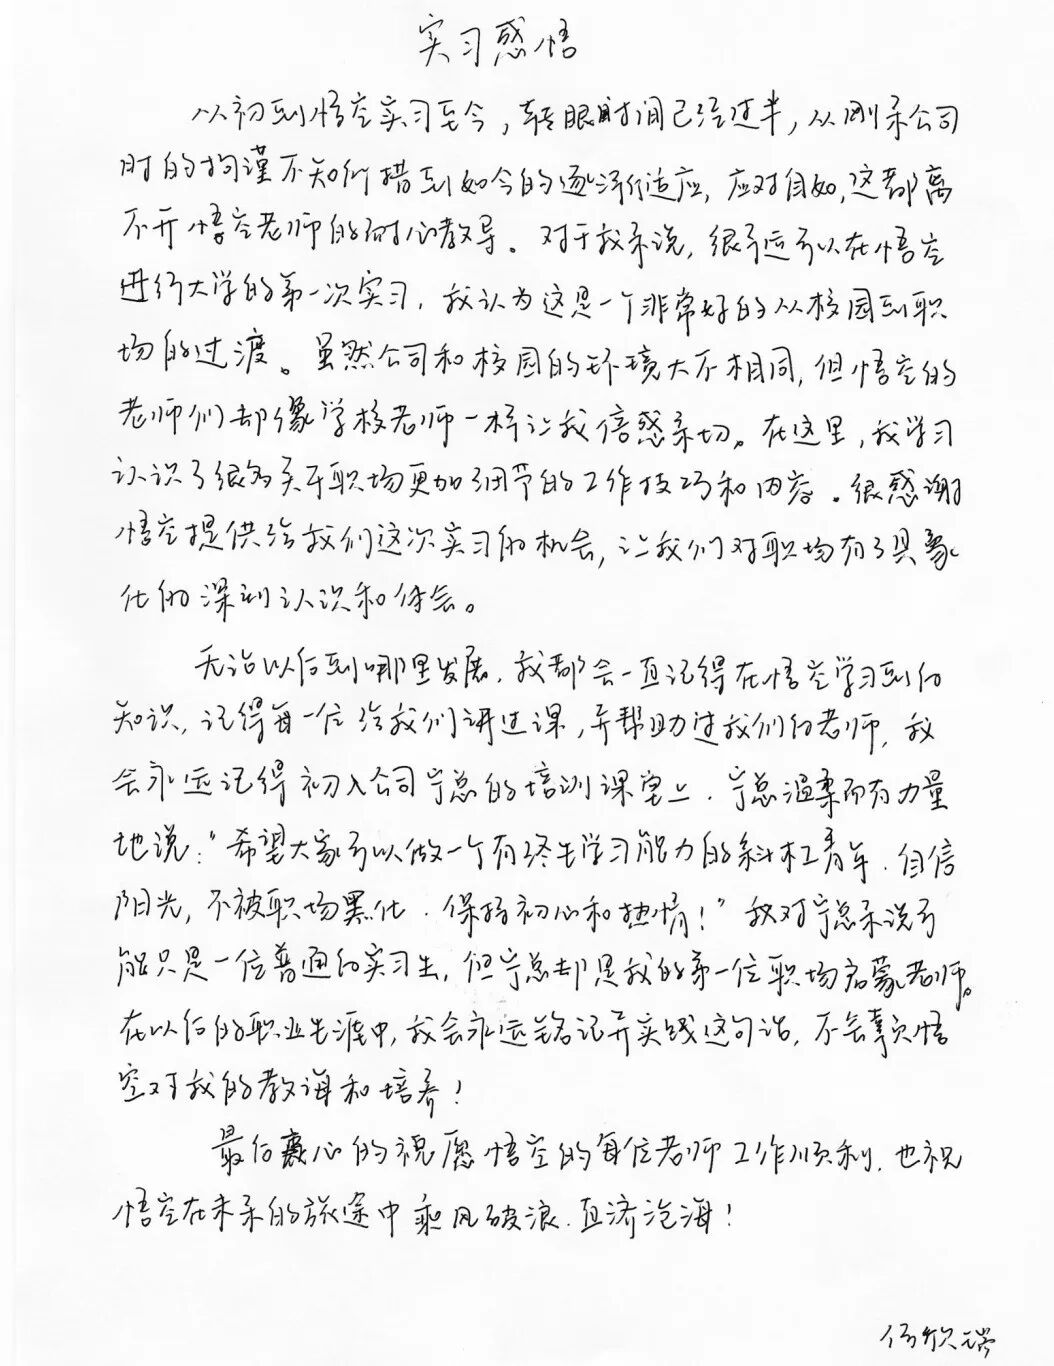 实习感悟
从初到悟空实习至今，转眼时间已经过半，从刚来公司
时的拘谨不知所措到如今的逐渐适应，应对自如，这都离
不开悟空老师的耐心教导。对于我来说，很幸运可以在悟空
进行大学的第一次实习，我认为这是一个非常好的从校园到职
场的过渡。虽然公司和校园的环境大不相同，但悟空的
老师们却像学校老师一样让我倍感亲切。在这里，我学习
认识了很多关于职场更加细节的工作技巧和内容。很感谢
悟空提供给我们这次实习的机会，让我们对职场有了具象
化的深刻认识和体会。
无论以后到哪里发展，我都会一直记得在悟空学习到的
知识，记得每一位给我们讲过课，并帮助过我们的老师，我
会永远记得初入公司宁总的培训课堂上，宁总温柔而有力量
地说：“希望大家可以做一个有终生学习能力的斜杠青年，自信
阳光，不被职场黑化，保持初心和热情！”我对宁总来说可
能只是一位普通的实习生，但宁总却是我的第一位职场启蒙老师。
在以后的职业生涯中，我会永远铭记并实践这句话，不会辜负悟
空对我的教诲和培养！
最后衷心的祝愿悟空的每位老师工作顺利，也祝
悟空在未来的旅途中乘风破浪，直济沧海！
欣瑞